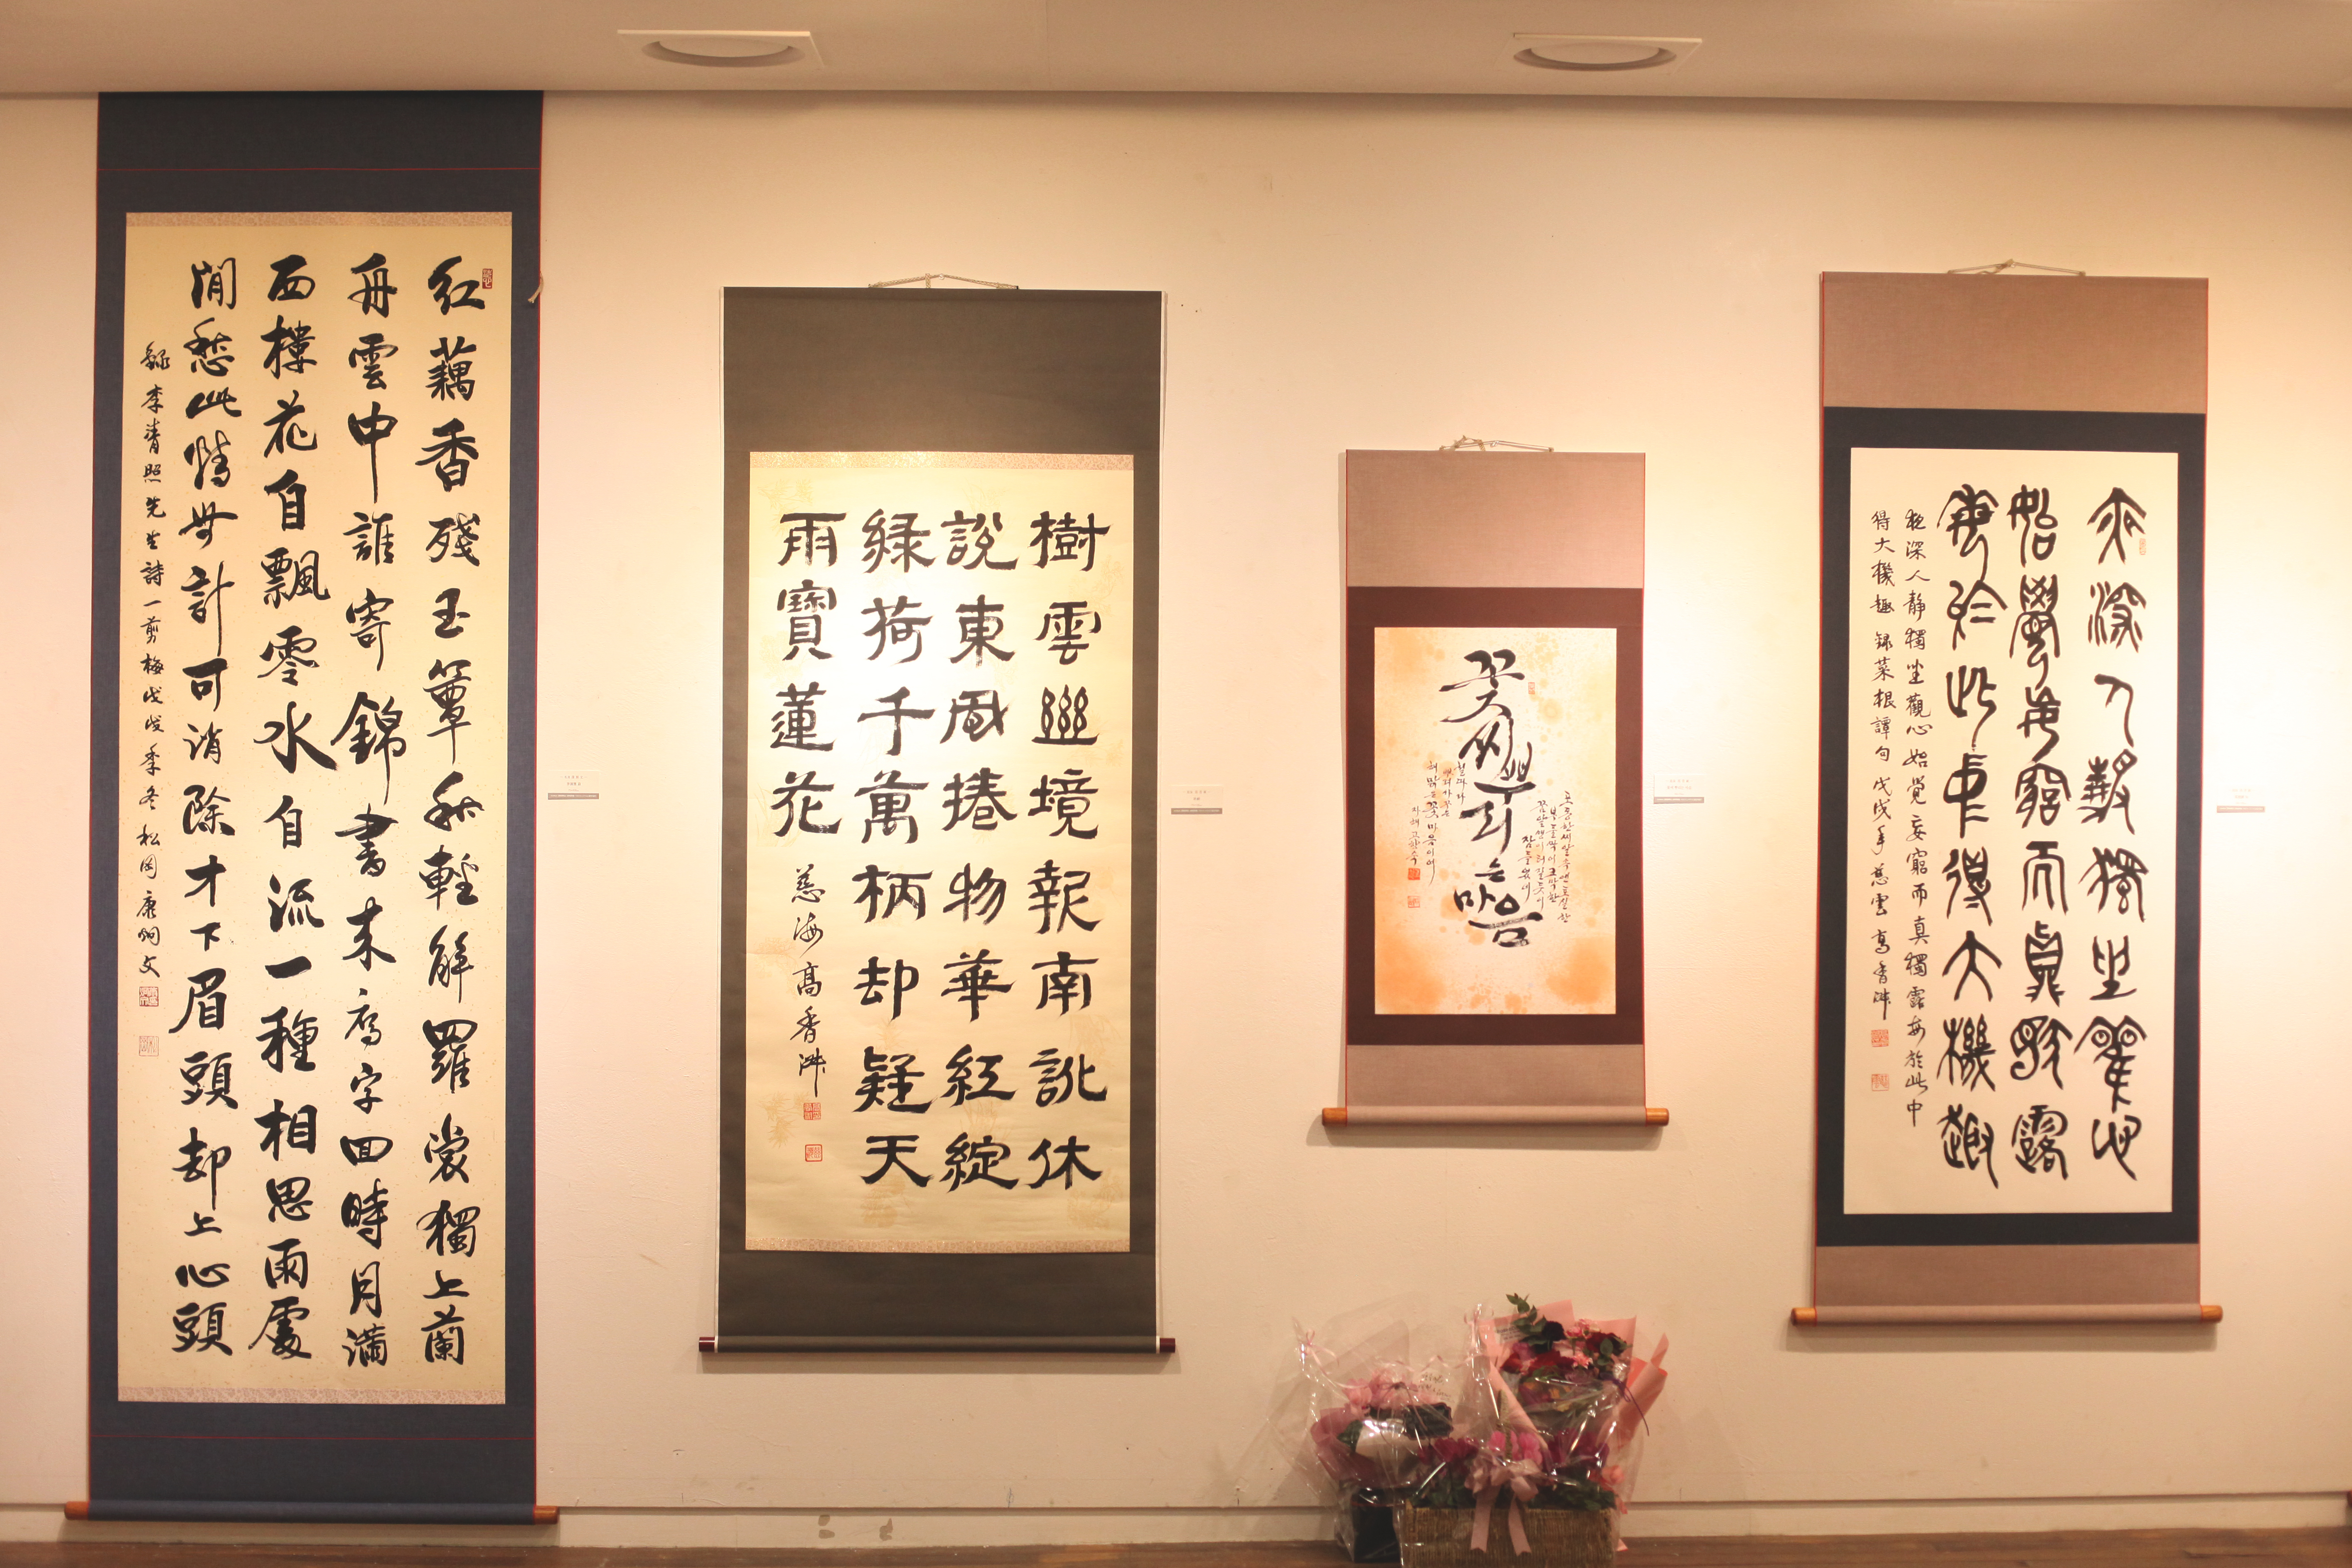 紅藕香殘玉簟秋輕解羅裳獨上蘭
舟雲中誰寄錦書來雁字回時月滿
西樓花自飄零水自流一種相思兩處
閒愁此情無計可消除才下眉頭却上心頭
錄李青照先生詩一剪梅戊戌季冬松岡康炯文
樹雲幽境報南訛休
說東風捲物華紅綻
綠荷千萬柄却疑天
雨寶蓮花
慈海高香
꽃
씨뿌
리는
마음
잠들었네
맑은 꽃마음이여
夜深人静獨坐觀心
始覺妄窮而眞獨露
每於此中得大機趣
夜深人静獨坐觀心始覺妄窮而真獨露每於此中
得大機趣 錄菜根譚句 戊戌 慈雲 高香